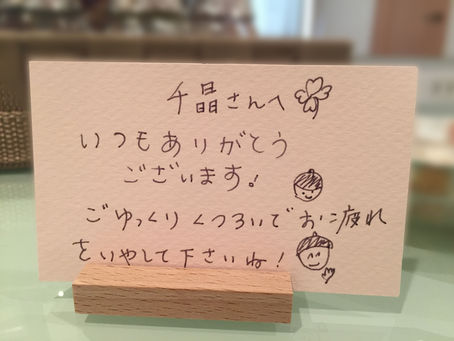 千晶さんへ
いつもありがとう
ございます!
ごゆっくりくつろいでお疲れ
をいやして下さいね!